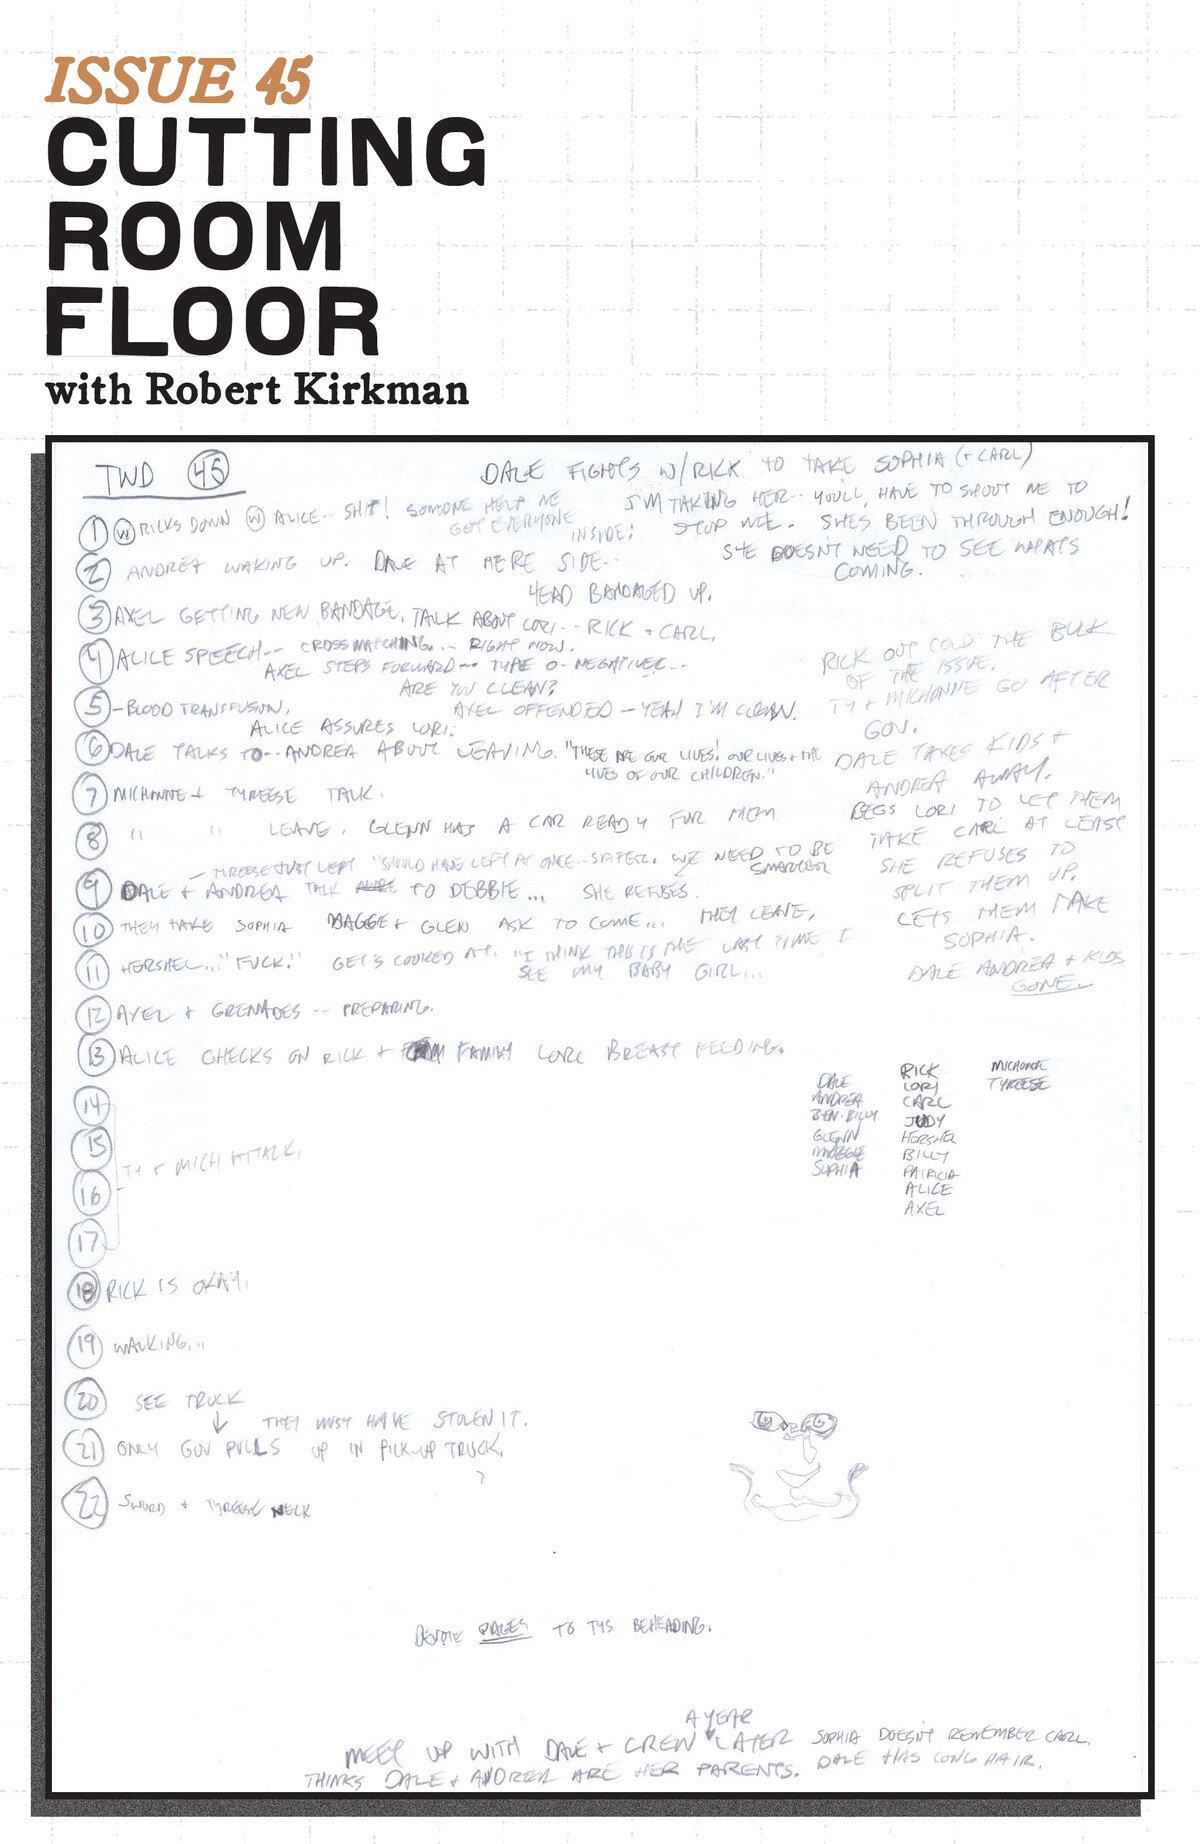 ISSUE 45
CUTTING
ROOM
FLOOR
with Robert Kirkman
TWD 45
DALE FIGHTS W/RICK TO TAKE SOPHIA (+ CARL)
I'M TAKING HER-- YOU'LL HAVE TO SHOOT ME TO
STOP ME. SHE'S BEEN THROUGH ENOUGH!
SHE DOESN'T NEED TO SEE WHATS
COMING.
1 W RICKS DOWN W ALICE-- SHIT! SOMEONE HELP ME
GET EVERYONE
INSIDE!
2 ANDREA WAKING UP. DALE AT HERE SIDE--
HEAD BANDAGED UP.
3 AXEL GETTING NEW BANDAGE. TALK ABOUT LORI-- RICK + CARL.
4 ALICE SPEECH-- CROSSMATCHING... RIGHT NOW.
AXEL STEPS FORWARD-- TYPE O-NEGATIVE--
ARE YOU CLEAN?
5 -BLOOD TRANSFUSION. AXEL OFFENDED - YEAH I'M CLEAN.
ALICE ASSURES LORI.
6 DALE TALKS TO-- ANDREA ABOUT LEAVING. "THESE ARE OUR LIVES! OUR LIVES + THE
LIVES OF OUR CHILDREN."
7 MICHONNE + TYREESE TALK.
8 " " LEAVE. GLENN HAS A CAR READY FOR THEM
- TYREESE JUST LEFT "SHOULD HAVE LEFT AT ONCE-- SAFER. WE NEED TO BE
SMARTER
9 DALE + ANDREA TALK TO DEBBIE... SHE REFUSES.
10 THEY TAKE SOPHIA MAGGE + GLEN ASK TO COME... THEY LEAVE.
11 HERSHEL... "FUCK." GETS LOOKED AT. "I THINK THIS IS THE LAST TIME I
SEE MY BABY GIRL...
12 AXEL + GRENADES -- PREPARING.
13 ALICE CHECKS ON RICK + FAMILY LORI BREAST FEEDING.
14
15
TY + MICH ATTACK.
16
17
18 RICK IS OKAY.
19 WALKING...
20 SEE TRUCK
THEY MUST HAVE STOLEN IT.
21 ONLY GOV PULLS UP IN PICK-UP TRUCK.
?
22 SWORD + TYREESE NECK
RICK OUT COLD THE BULK
OF THE ISSUE.
TY + MICHONNE GO AFTER
GOV.
DALE TAKES KIDS +
ANDREA AWAY.
BEGS LORI TO LET THEM
TAKE CARL AT LEAST
SHE REFUSES TO
SPLIT THEM UP.
LETS THEM TAKE
SOPHIA.
DALE ANDREA + KIDS
GONE.
DALE
ANDREA
BEN-BILLY
GLENN
MAGGIE
SOPHIA
RICK
LORI
CARL
JUDY
HERSHEL
BILLY
PATRICIA
ALICE
AXEL
MICHONNE
TYREESE
DEVOTE PAGES TO TYS BEHEADING.
A YEAR
MEET UP WITH DALE + CREW LATER SOPHIA DOESN'T REMEMBER CARL.
THINKS DALE + ANDREA ARE HER PARENTS. DALE HAS LONG HAIR.